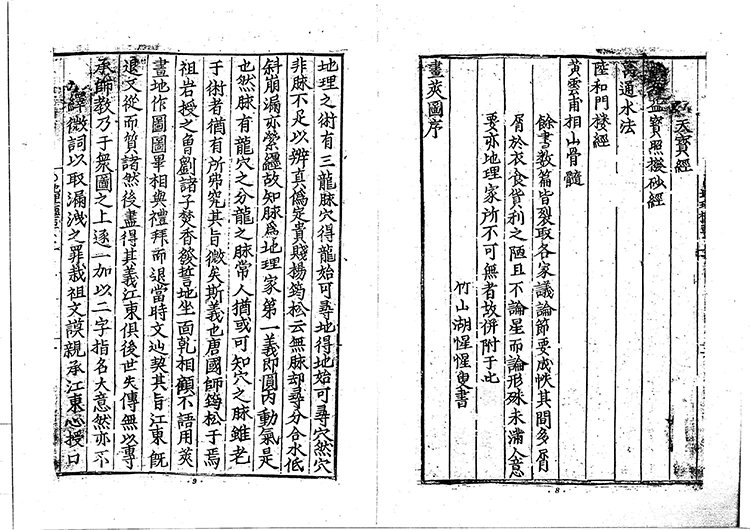 天寶經
益寶照撥砂經
通水法
陸和門樓經
黄雲甫相山骨髓
餘書数篇皆裂取各家議論節要成帙其間多屑
屑於衣食貨利之陋且不論星而論形殊未滿人意
要亦地理家所不可無者故併附于此
竹山湖惺惺叟書
畫莢圖序
8
地理之術有三龍脉穴得龍始可尋地得地始可尋穴然穴
非脉不足以辨真偽定貴賤楊筠松云無脉却尋分合水低
斜崩漏亦縈纒故知脉爲地理家第一義即圓内動氣是
也然脉有龍穴之分龍之脉常人猶或可知穴之脉雖老
于術者猶有所弗究其旨微矣斯義也唐國師筠松子焉
祖岩授之曽劉諸子焚香發誓地坐面乾相顧不語用莢
畫地作圖圖畢相與禮拜而退當時文辿契其旨江東旣
退又從而質諸然後盡得其義江東俱後世失傳無以專
承師教乃于衆圖之上逐一加以二字指名大意然亦不
微詞以取漏洩之罪哉祖文謨親承江東心授口
9